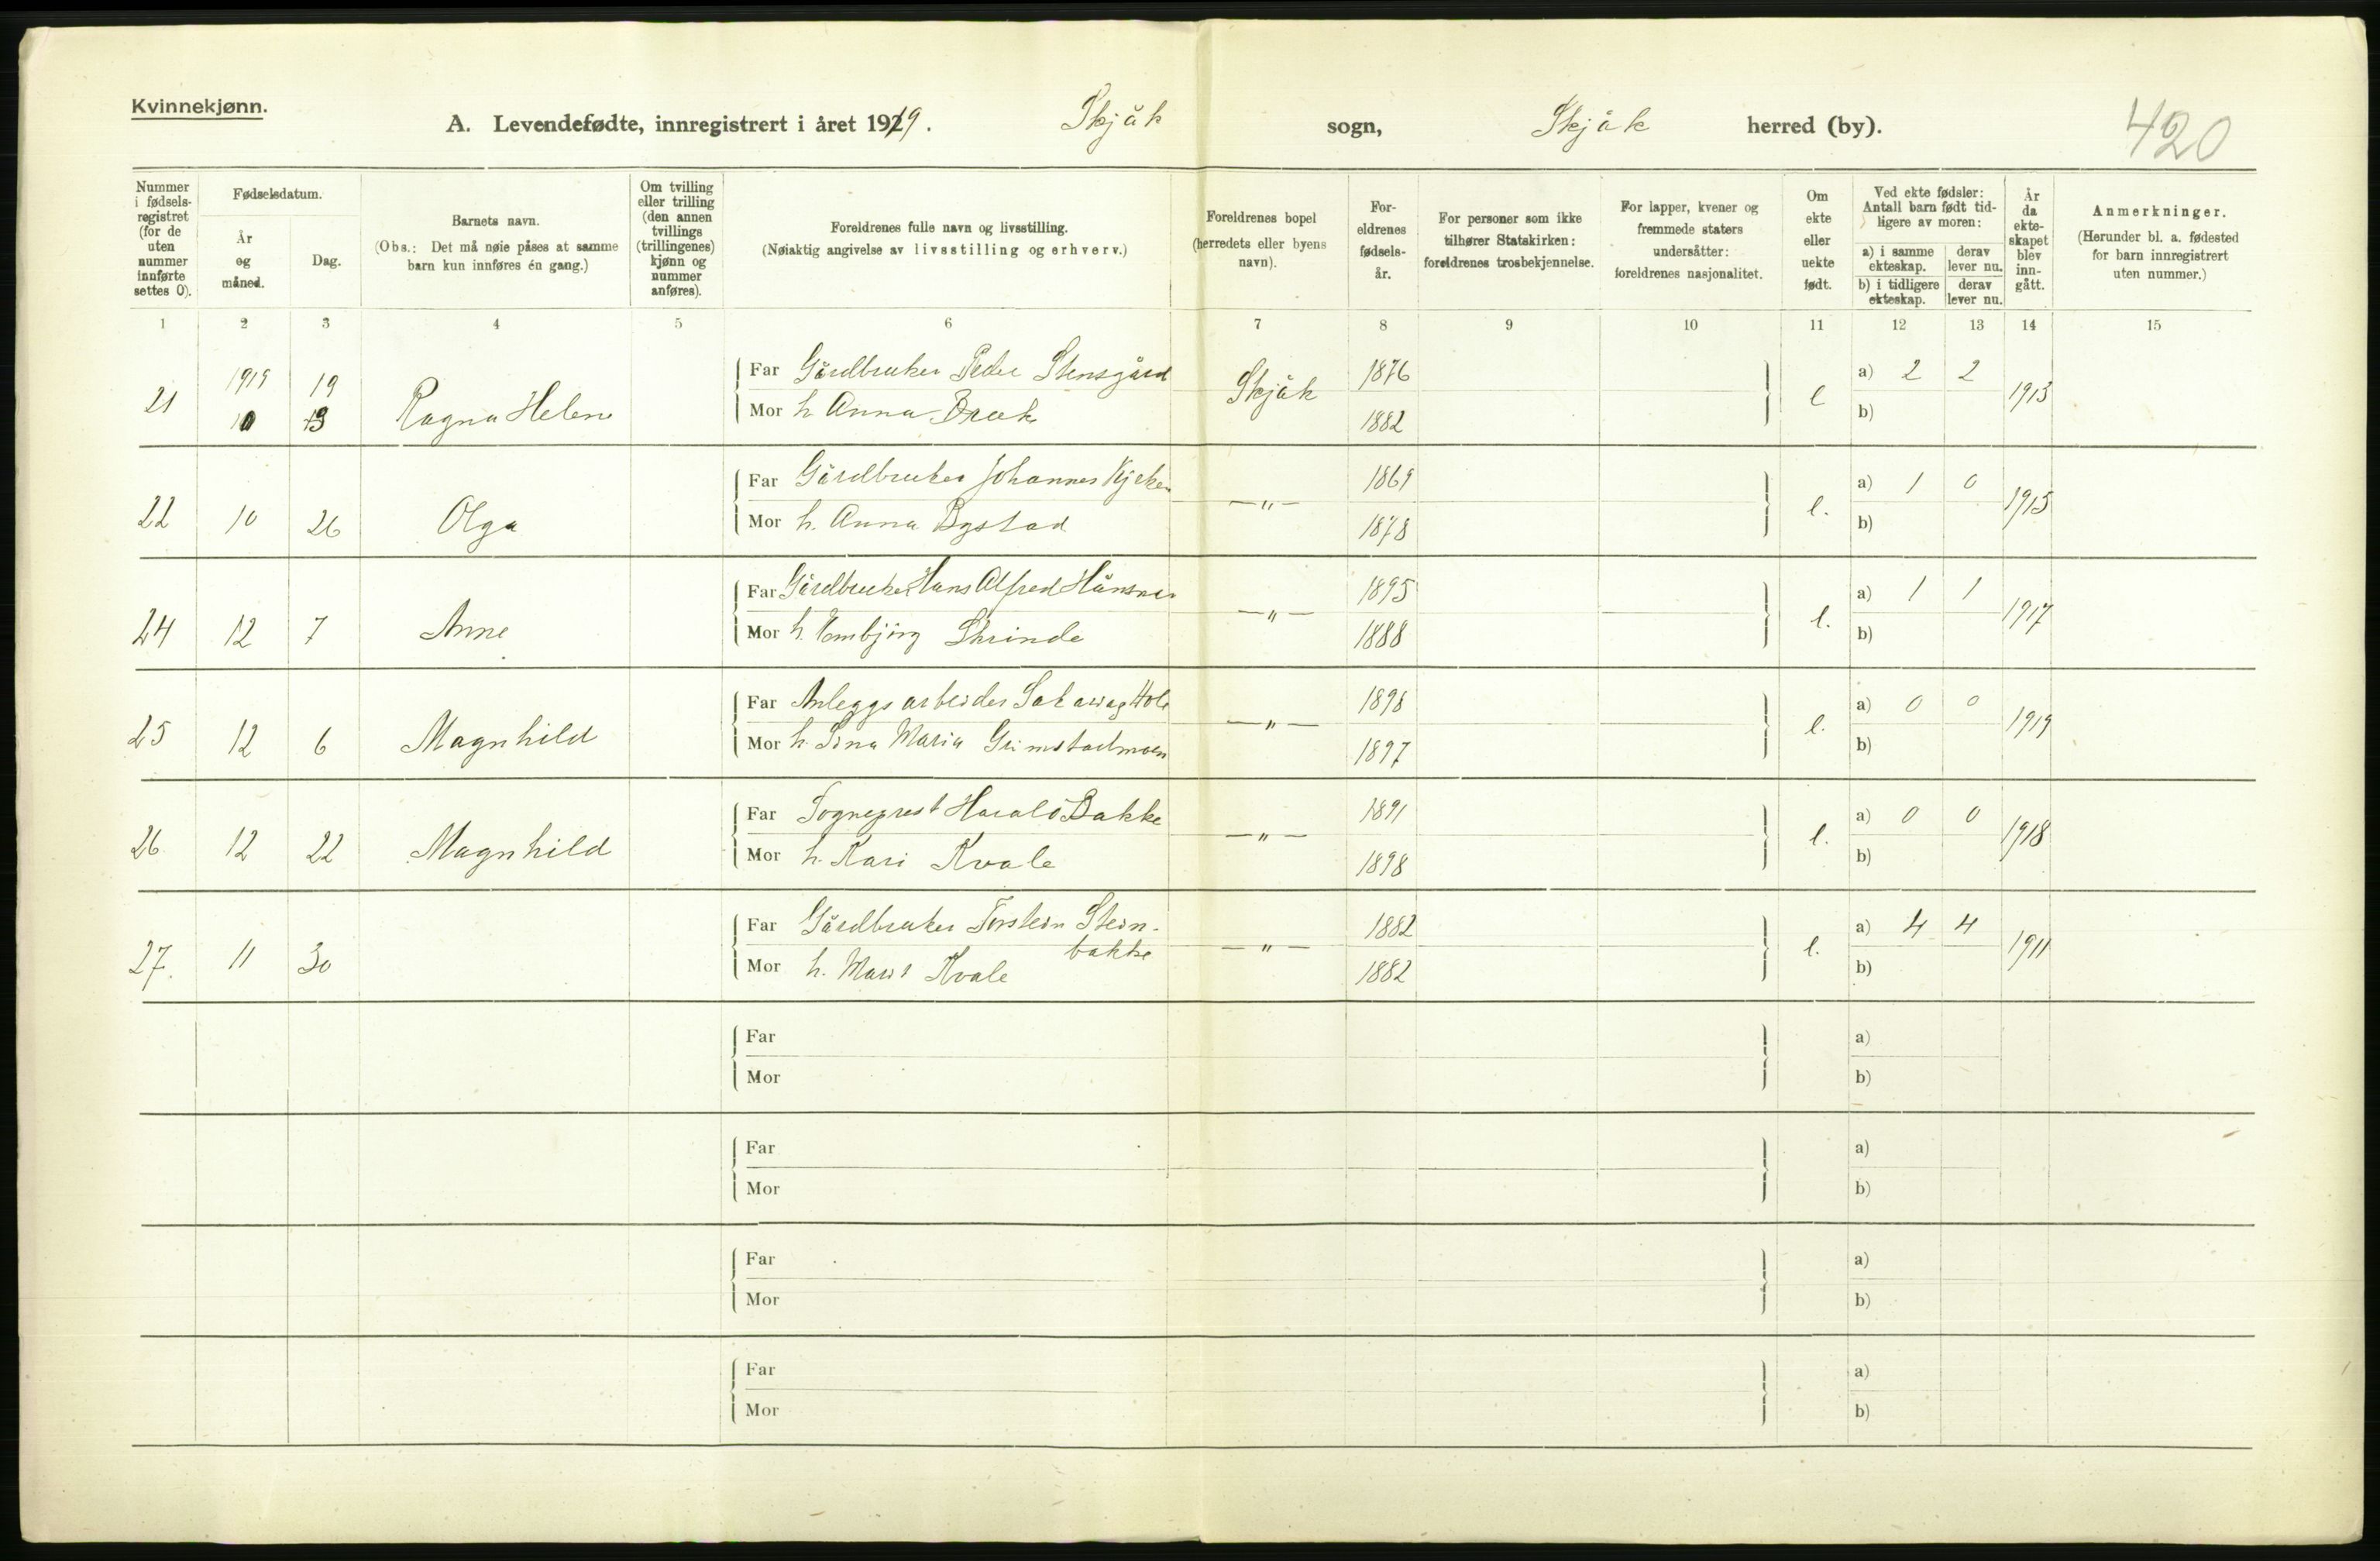 Kvinnekjønn.
A. Levendefødte, innregistrert i året 1919. Skjåk sogn, Skjåk herred (by). 420
Nummer i fødsels-registret (for de uten nummer innførte settes 0).
Fødselsdatum.
År og måned.
Dag.
Barnets navn.
(Obs.: Det må nøie påses at samme barn kun innføres én gang.)
Om tvilling eller trilling (den annen tvillings (trillingenes) kjønn og nummer anføres).
Foreldrenes fulle navn og livsstilling.
(Nøiaktig angivelse av livsstilling og erhverv.)
Foreldrenes bopel (herredets eller byens navn).
For-eldrenes fødsels-år.
For personer som ikke tilhører Statskirken: foreldrenes trosbekjennelse.
For lapper, kvener og fremmede staters undersåtter: foreldrenes nasjonalitet.
Om ekte eller uekte født.
Ved ekte fødsler: Antall barn født tid-ligere av moren:
a) i samme ekteskap. derav lever nu.
b) i tidligere ekteskap. derav lever nu.
År da ekte-skapet blev inn-gått.
Anmerkninger.
(Herunder bl. a. fødested for barn innregistrert uten nummer.)
1 2 3 4 5 6 7 8 9 10 11 12 13 14 15
21 1919 10 19 Ragna Helene Far Gårdbruker Peder Stensgård Skjåk 1876 e a) 2 2 1913
Mor h. Anna Bræk 1882 b)
22 10 26 Olga Far Gårdbruker Johannes Kjeken —"— 1869 e. a) 1 0 1915
Mor h. Anna Bystad 1878 b)
24 12 7 Anne Far Gårdbruker Hans Alfred —"— 1895 e. a) 1 1 1917
Mor h. Skrinde 1888 b)
25 12 6 Magnhild Far Anleggsarbeider Sakarias Hole —"— 1898 e. a) 0 0 1919
Mor h. Maria Grimstadmoen 1897 b)
26 12 22 Magnhild Far Sogneprest Harald Bakke —"— 1891 e. a) 0 0 1918
Mor h. Kari Kvale 1898 b)
27. 11 30 Far Gårdbruker Torstein Stein- —"— 1882 e. a) 4 4 1911
bakke
Mor h. Kvale 1882 b)
Far a)
Mor b)
Far a)
Mor b)
Far a)
Mor b)
Far a)
Mor b)